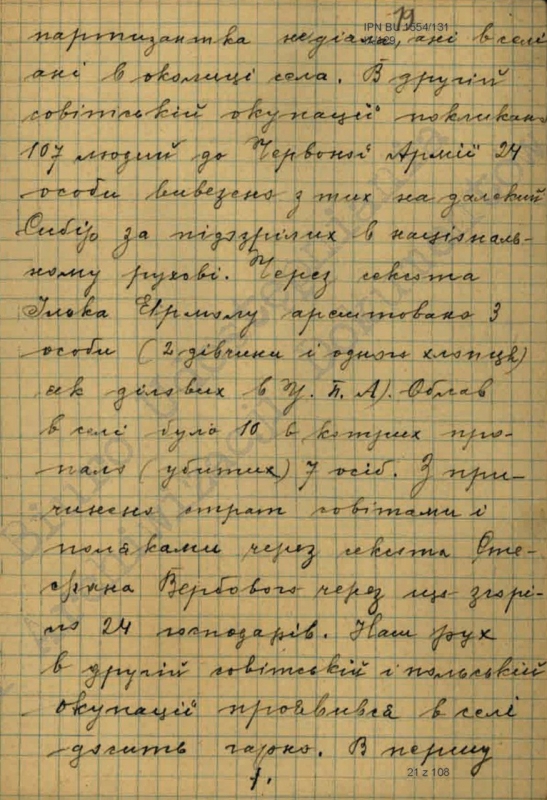 19
IPN BU 1554/131
партизантка недіяла, ані в селі
ані в околиці села. В другій
совітській окупації покликано
107 людий до Червоної Армії 24
особи вивезено з тих на далекий
Сибір за підозрілих в національ-
ному рухові. Через сексота
Ілька Єрмолу арештовано 3
особи (2 дівчини і одного хлопця)
як ділових в У.П.А). Облав
в селі було 10 в котрих про-
пало (убитих) 7 осіб. З при-
чинено страт совітами і
поляками через сексота Сте-
фана Вербового через що згорі-
ло 24 господарів. Наш рух
в другій совітській і польській
окупації проявився в селі
досить гарно. В першу
1.
21 z 108